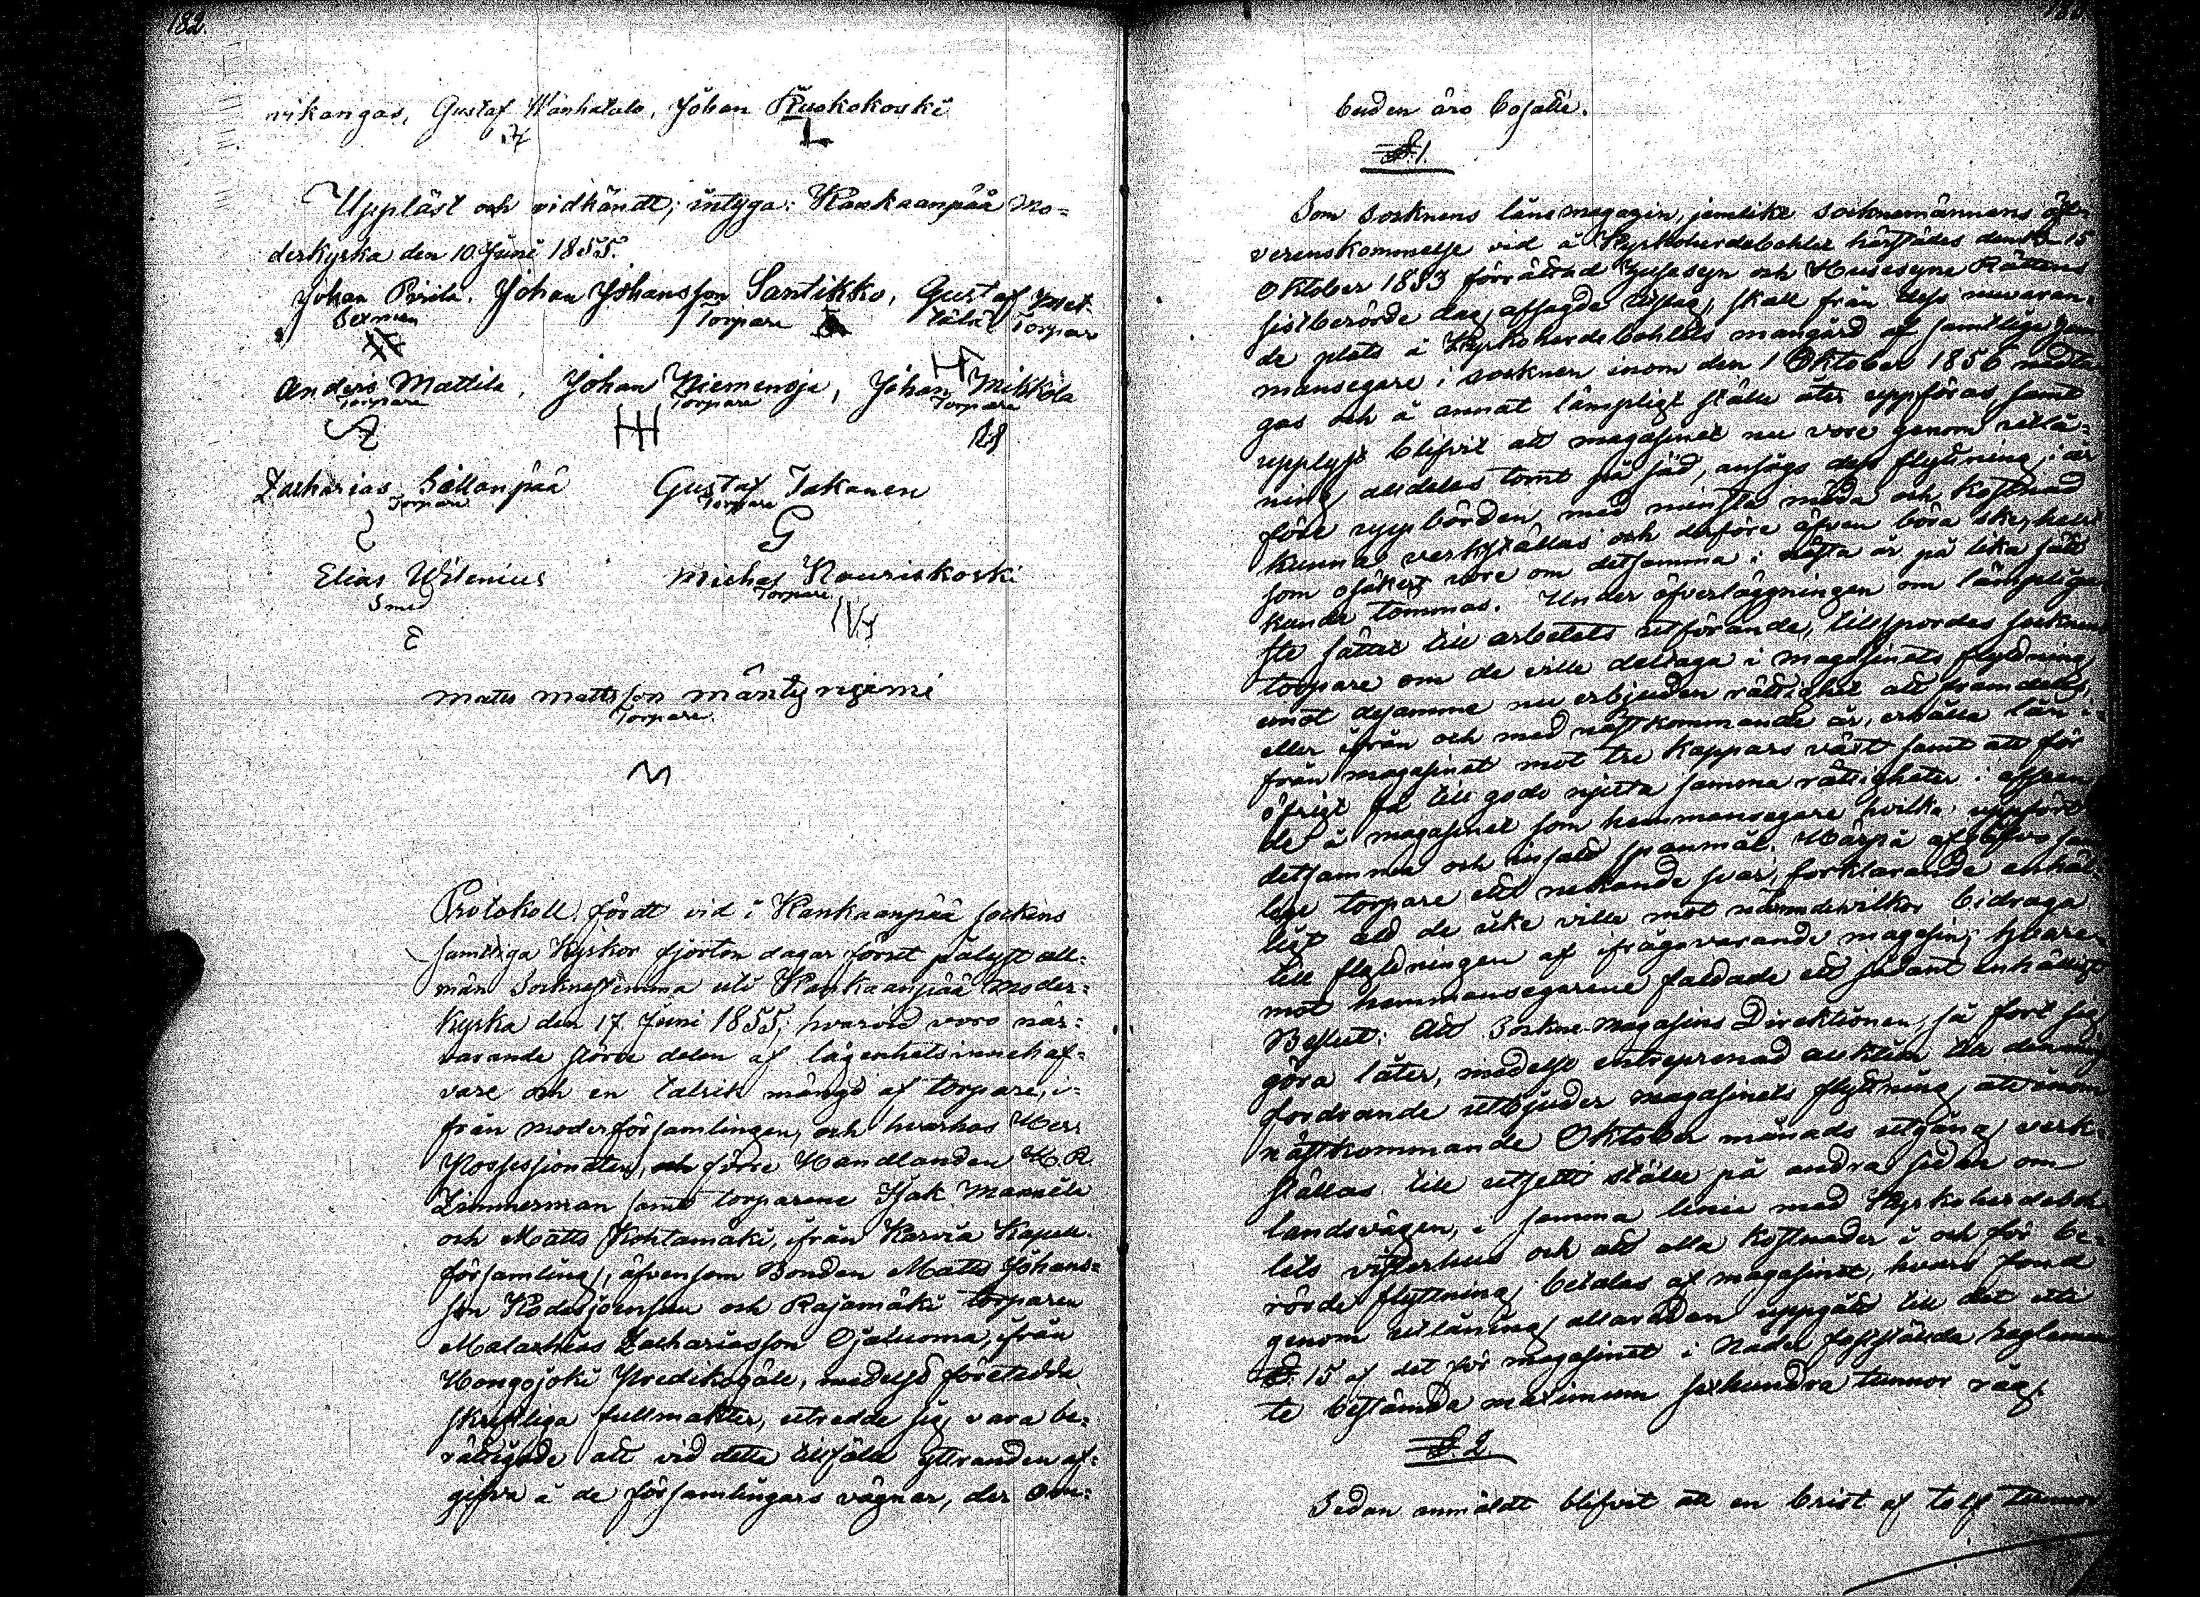 182.
nikangas, Gustaf Wanhatalo, Johan Ruokokoski
Uppläst och vidkändt, intyga: Kankaanpää mo-
derkyrka den 10 Juni 1855.
Johan Pirilä, Johan Johansson Santikko, Gustaf
Torpare Torpare
Anders Mattila, Johan Niemenoja, Johan Mikkola
Torpare Torpare Torpare
Zacharias Sillanpää Gustaf Takanen
Torpare Torpare
G
Elias Wilenius Michel Kouriskoski
Smed Torpare
E
Matts Mattsson Mäntyniemi
Torpare.
M
Protokoll, fördt vid i Kankaanpää sockens
samtliga Kyrkor fjorton dagar förut pålyst all-
män Socknestämma uti Kankaanpää Moder-
kyrka den 17 Juni 1855; hvarvid voro när-
varande större delen af lägenhetsinnehaf-
vare och en talrik mängd af torpare, i-
från moderförsamlingen, och hvarhos Herr
Possessionaten, och förre Handlanden H. R.
Zimmerman samt torparene Isak Mannila
och Matts Kohtamäki, ifrån Karvia Kapell-
församling, äfvensom Bonden Matts Johans-
son och Rajamäki torparen
Zachariasson Ojaluoma, ifrån
Hongojoki Predikogäll, medelst företedde
skriftliga fullmakter, utredde sig vara be-
rättigade att vid detta tillfälle yttranden af-
gifva å de församlingars vägnar, der Om-
buden äro bosatte.
§. 1.
Som Socknens lånemagazin, jemlikt Socknemännens öf-
verenskommelse vid å Kyrkoherdebohlet härstädes den 15
Oktober 1853 förrättad Husesyn och Husesyns Rättens
sistberörde dag afsagde utslag, skall från dess nuvaran-
de plats å Kyrkoherdebohlets mangård af samtlige hem-
mansegare i socknen inom den 1 Oktober 1856 nedta-
gas och å annat lämpligt ställe åter uppföras samt
upplyst blifvit att magasinet nu vore genom utlå-
ning alldeles tomt på säd, ansågs dess flyttning i år
före uppbörden med minsta möda och kostnad
kunna verkställas och derföre äfven böra ske, helst
som osäkert vore om detsamma i nästa år på lika sätt
kunde tömmas. Under öfverläggningen om lämpliga-
ste sättet till arbetets utförande, tillspordes socknens
torpare om de ville deltaga i magasinets flyttning
emot desamma nu erbjuden rättighet att framdeles
eller ifrån och med nästkommande år, erhålla lån i-
från magasinet mot tre kappars växt samt att för
öfrigt få till godo njuta samma rättigheter i afseen-
de å magasinet som hemmansegare hvilka uppfört
detsamma och insatt spanmål. Härpå afgåfvo sam-
lige torpare ett nekande svar, förklarande enhäl-
ligt att de icke ville mot nämnde vilkor bidraga
till flyttningen af ifrågavarande magasin; hvare-
mot hemmansegarene fattade ett sådant enhälligt
Beslut: Att Sockne-magasins Direktionen, så fort sig
göra låter, medelst entreprenad auktion till den minst
fordrande utbjuder magasinets flyttning att inom
nästkommande Oktober månads utgång verk-
ställas till utsett ställe på andra sidan om
landsvägen, i samma linie med Kyrkoherdeboh-
lets visthus och att alla kostnader i och för be-
rörde flyttning betalas af magasinet, hvars fond
genom utlåning allaredan uppgått till det uti
§. 15 af det för magasinet i Nåder fastställda Reglemen-
te bestämda maximum sexhundra tunnor råg.
§. 2.
Sedan anmäldt blifvit att en brist af tolf tunnor